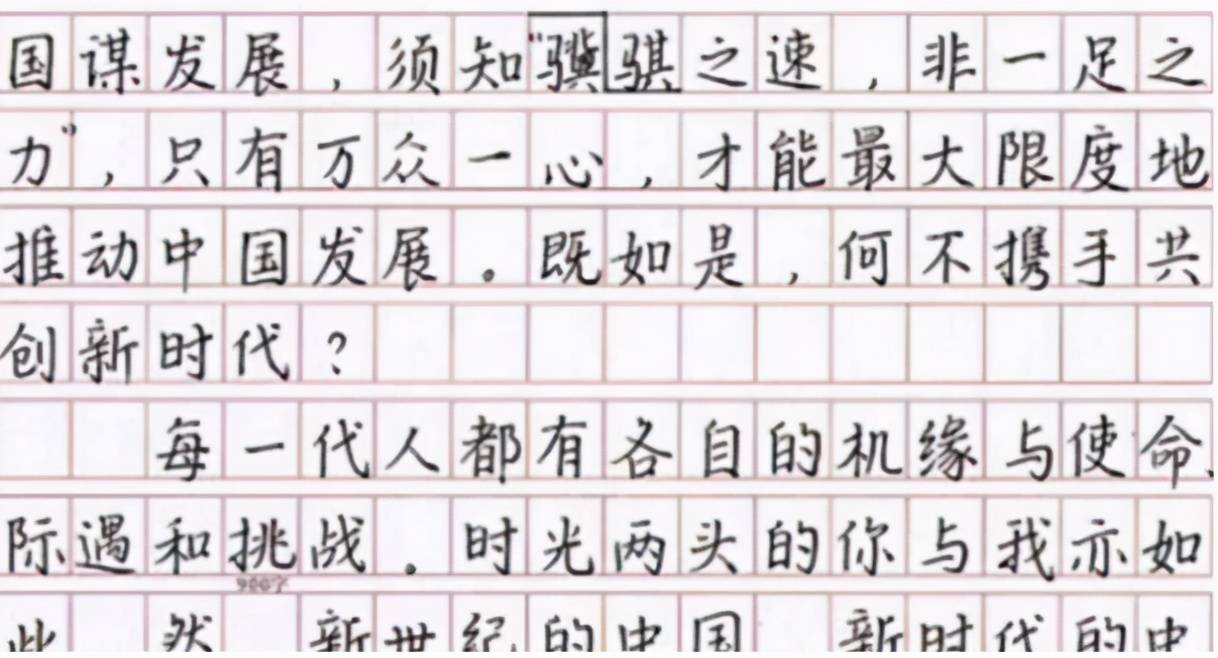 国谋发展，须知“骥骐之速，非一足之
力”，只有万众一心，才能最大限度地
推动中国发展。既如是，何不携手共
创新时代？
每一代人都有各自的机缘与使命、
际遇和挑战。时光两头的你与我亦如
900字
此 然 新世纪的中国 新时代的中